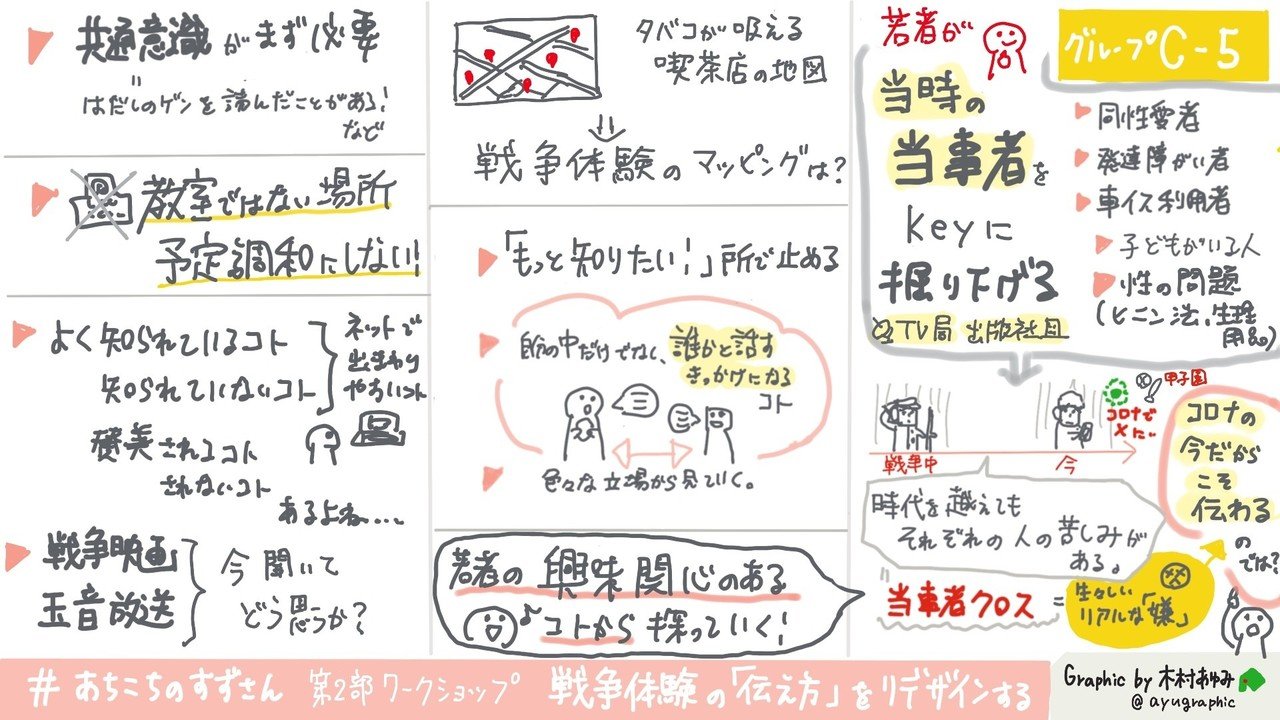 共通意識がまず必要
はだしのゲンを読んだことがある!
など
教室ではない場所
予定調和にしない!
よく知られているコト
知られていないコト
ネットで
出まわり
やすいコト
褒美されるコト
されないコト
あるよね...
戦争映画
玉音放送
今聞いて
どう思うか?
タバコが吸える
喫茶店の地図
戦争体験のマッピングは?
「もっと知りたい!」所で止める
自分の中だけでなく、誰かと話す
きっかけになる
コト
色々な立場から見ていく。
若者の興味関心のある
コトから探っていく!
若者が
当時の
当事者を
keyに
掘り下げる
TV局 出版社員
グループC-5
同性愛者
発達障がい者
車イス利用者
子どもがいる人
性の問題
(ヒニン法、生理
用品)
戦争中
今
コロナで
甲子園
時代を越えても
それぞれの人の苦しみが
ある。
当事者クロス
=
生々しい
リアルな「嫌」
コロナの
今だから
こそ
伝わる
の
では?
#あちこちのすずさん 第2部ワークショップ 戦争体験の「伝え方」をリデザインする
Graphic by 木村あゆみ
@ayugraphic